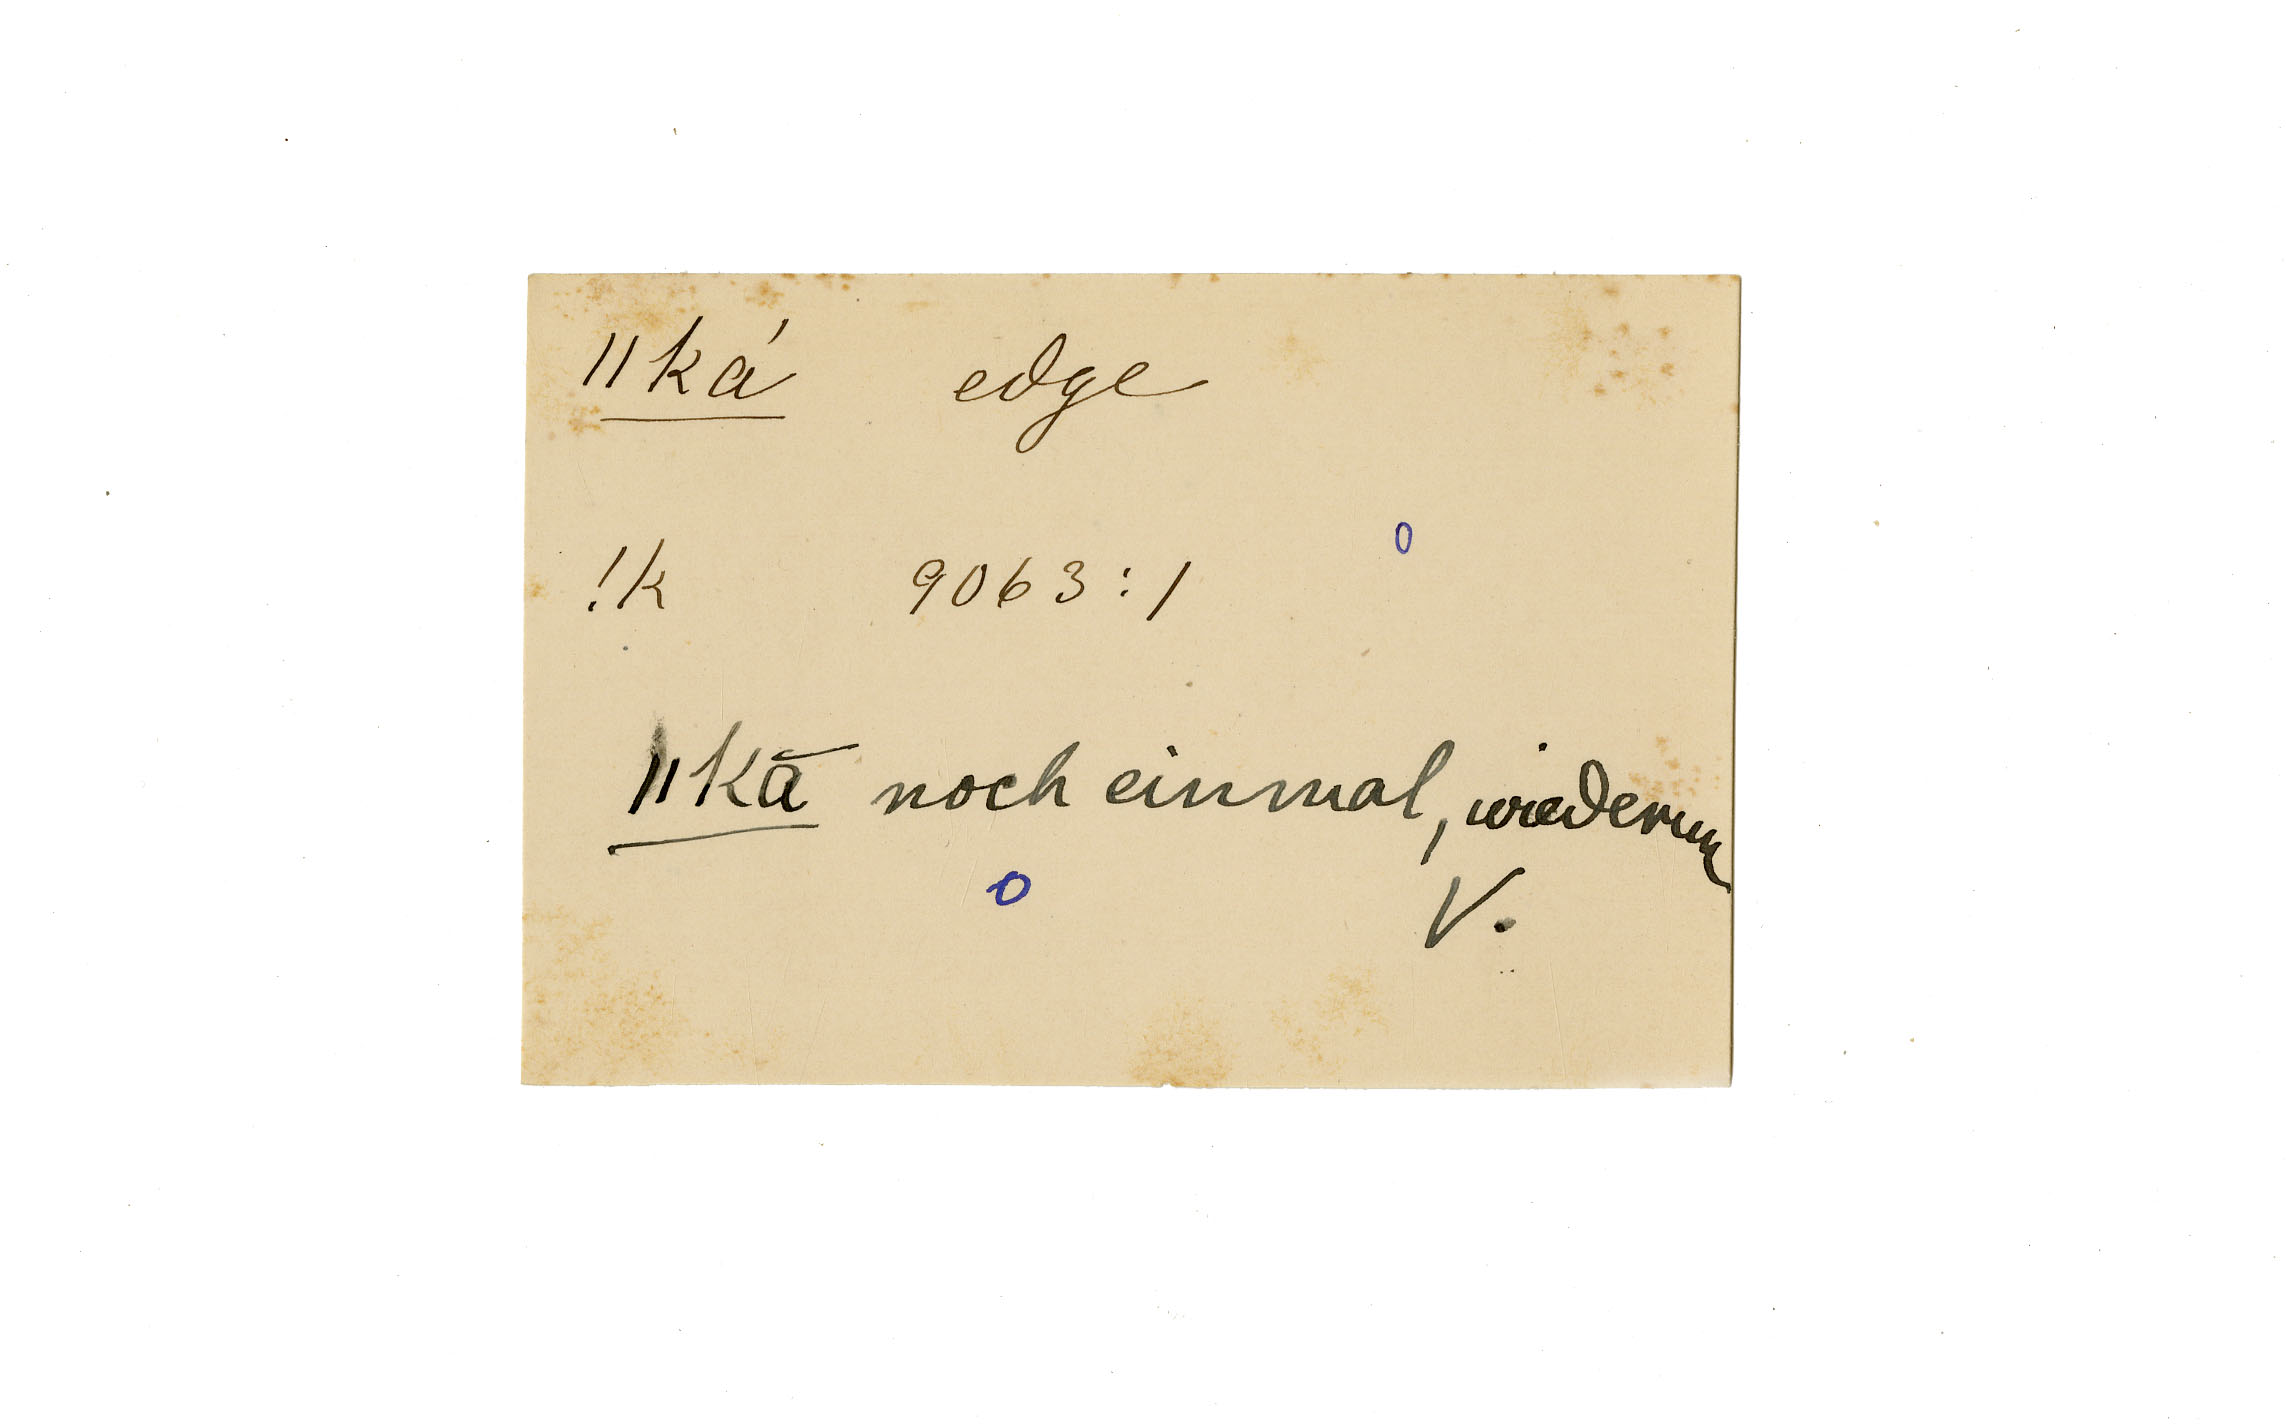 ǁká edge
o
!k 9063:1
ǁkā noch einmal, wiederum
o V.